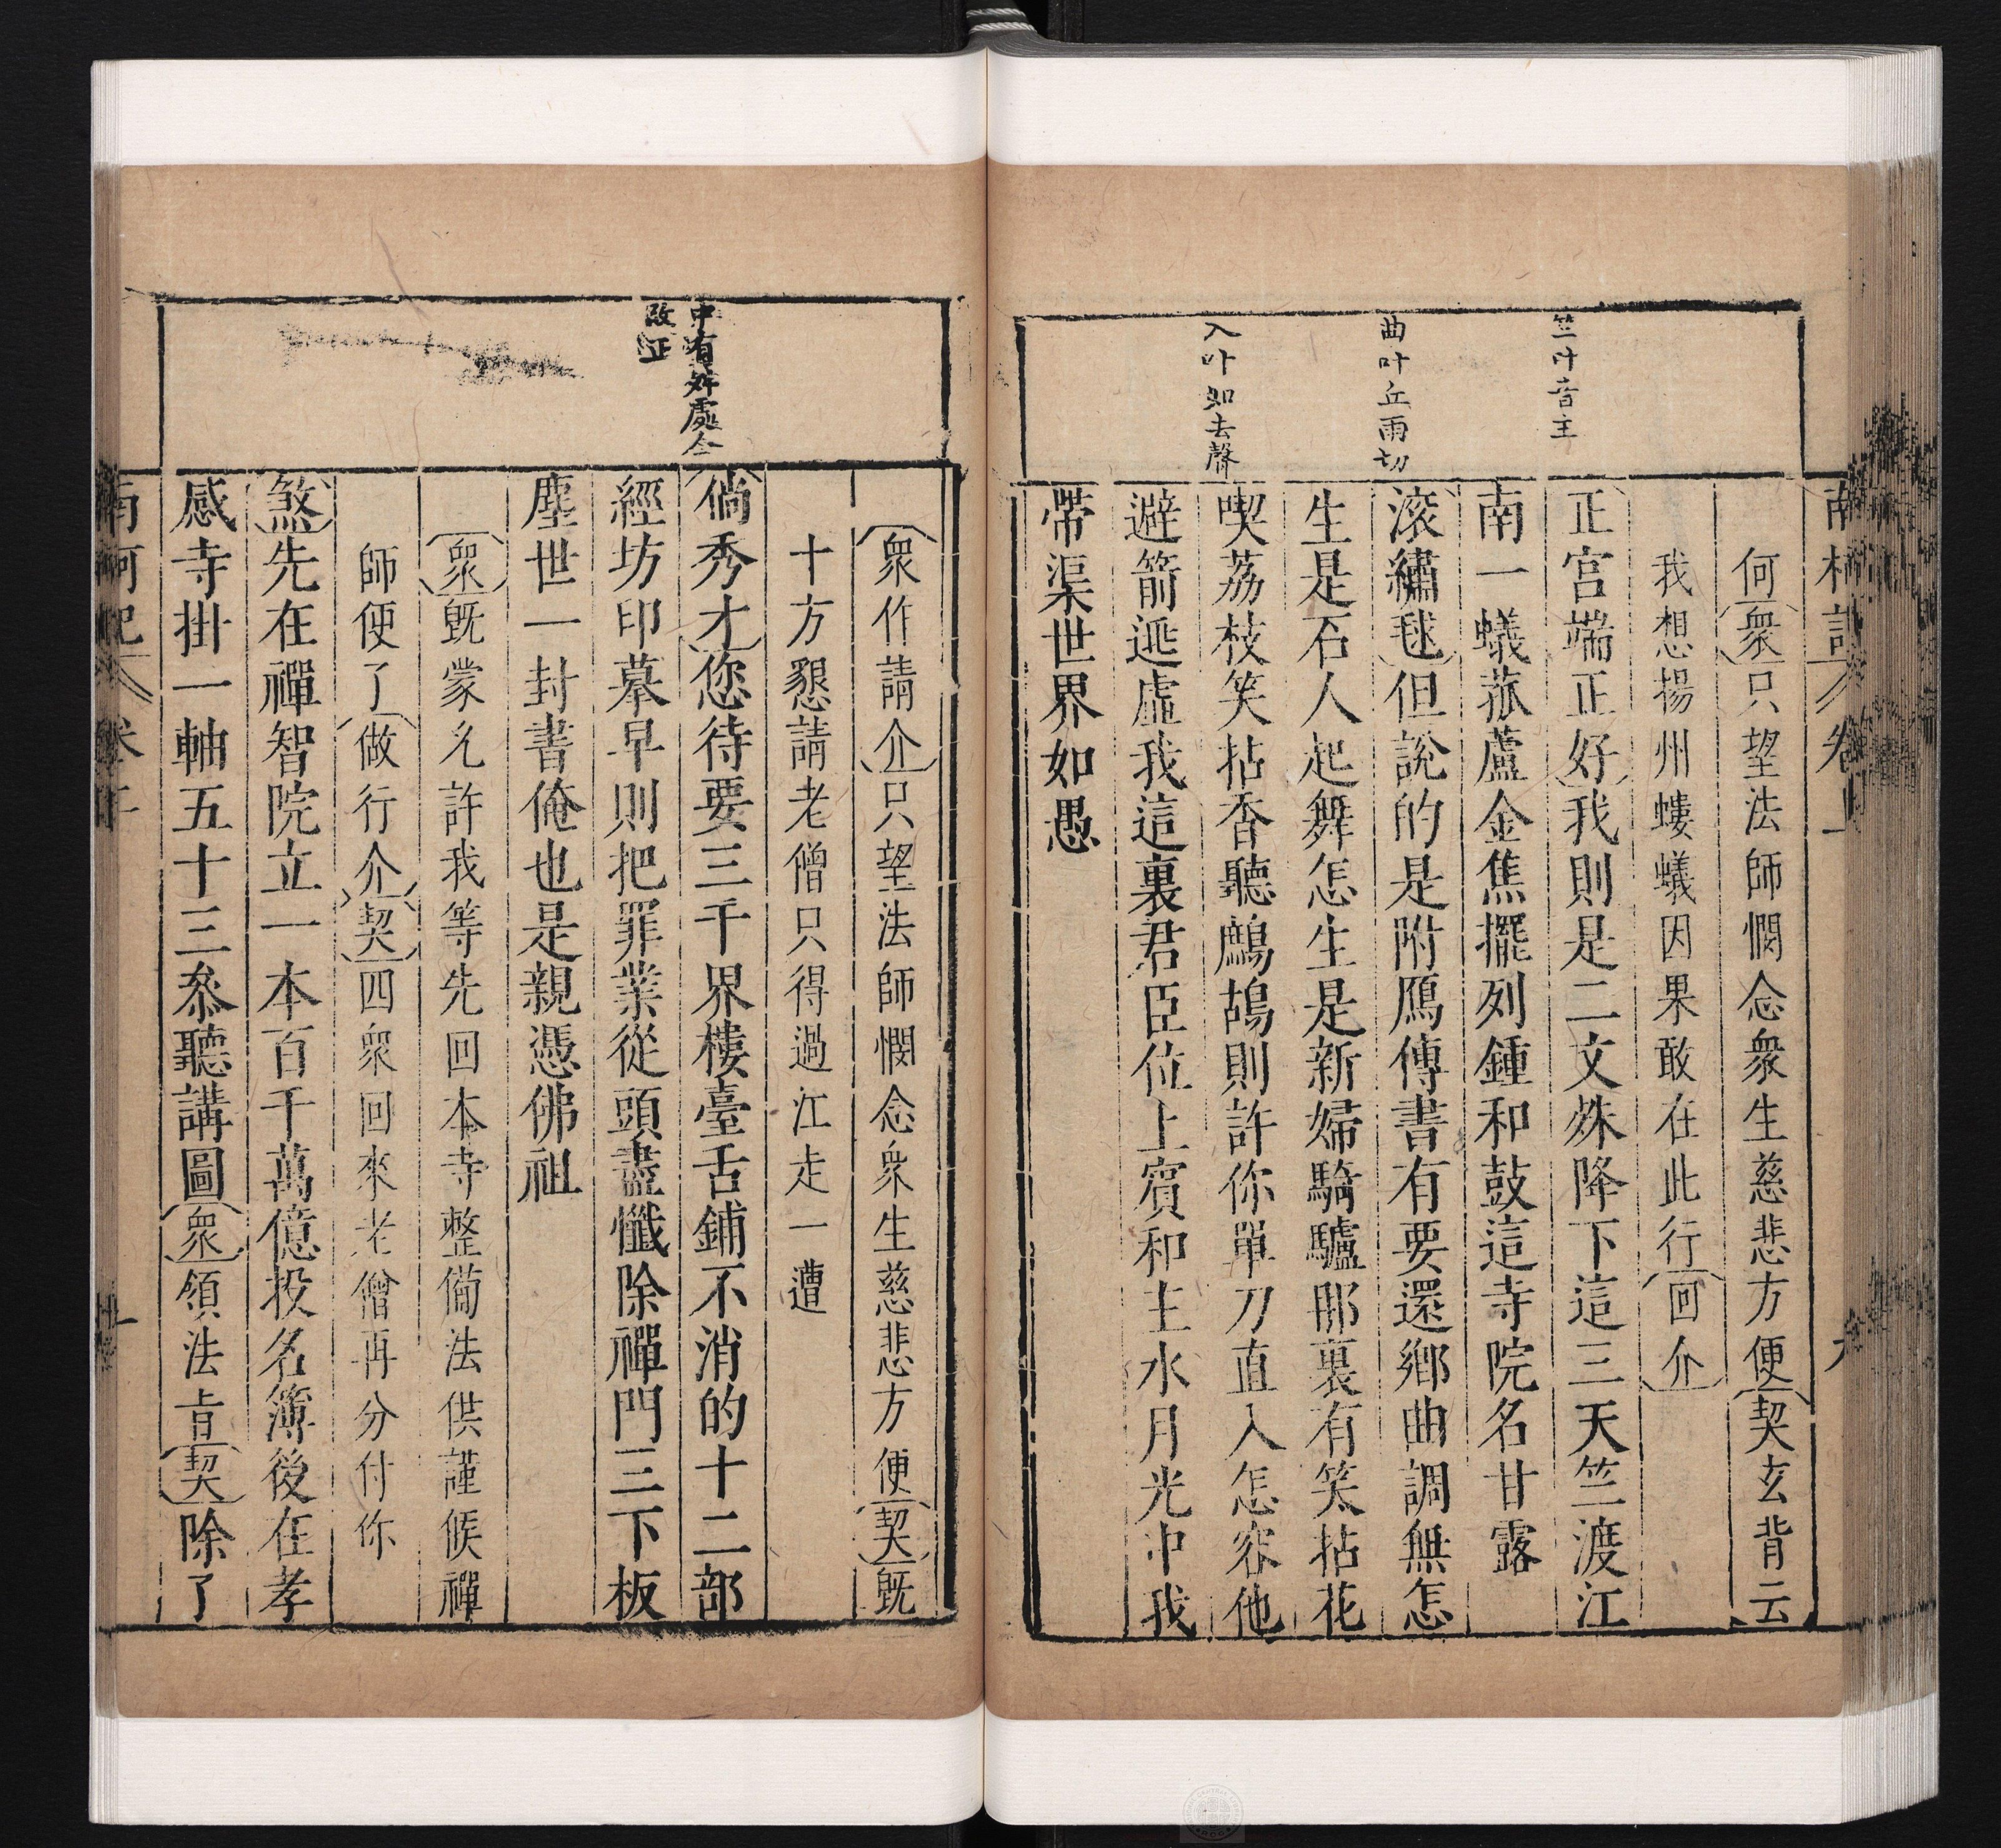 竺叶音主
曲叶丘雨切
入叶如去聲
何(衆)只望法師憫念衆生慈悲方便(契玄背云
我想揚州螻蟻因果敢在此行(回介)
(正宮端正好)我則是二文殊降下這三天竺渡江
南一蟻菰蘆金焦擺列鍾和鼓這寺院名甘露
(滚繡毬)但說的是附鴈傳書有要還鄉曲調無怎
生是石人起舞怎生是新婦騎驢那裏有笑拈花
喫荔枝笑拈香聽鷓鴣則許你單刀直入怎容他
避箭逃虛我這裏君臣位上賓和主水月光中我
帶渠世界如愚
中有好處今
改正
(衆作請介)只望法師憫念衆生慈悲方便(契)既
十方懇請老僧只得過江走一遭
(倘秀才)您待要三千界樓臺舌鋪不消的十二部
經坊印摹早則把罪業從頭盡懺除禪門三下板
塵世一封書俺也是親憑佛祖
(衆)既蒙允許我等先回本寺整備法供謹候禪
師便了(做行介)(契)四衆回來老僧再分付你
(煞)先在禪智院立一本百千萬億投名簿後在孝
感寺掛一軸五十三叅聽講圖(衆)領法旨(契)除了
南柯記 卷上